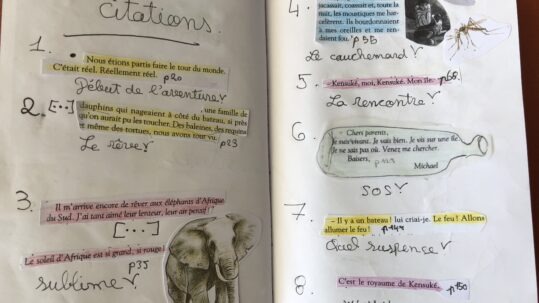 Citations.
1.
Nous étions partis faire le tour du monde.
C'était réel. Réellement réel. p20
Début de l'aventure
2. [...] une famille de
dauphins qui nageaient à côté du bateau, si près
qu'on aurait pu les toucher. Des baleines, des requins
et même des tortues, nous avons tout vu.
Le rêve p23
3.
– Il m'arrive encore de rêver aux éléphants d'Afrique
du Sud. J'ai tant aimé leur lenteur, leur air pensif
[...]
Le soleil d'Afrique est si grand, si rouge!
sublime p35
4.
jacassait, coassait et, toute la
nuit, les moustiques me har-
celèrent. Ils bourdonnaient
à mes oreilles et me ren-
daient fou. p55
Le cauchemard
5. – Kensuké, moi, Kensuké. Mon île. p68
La rencontre
6
Chers parents,
Je suis vivant. Je vais bien. Je vis sur une île.
Je ne sais pas où. Venez me chercher.
Baisers,
Michael
SOS
7.
– Il y a un bateau! lui criai-je. Le feu! Allons
allumer le feu! p144
Quel suspence
8
C'est le royaume de Kensuké. p150